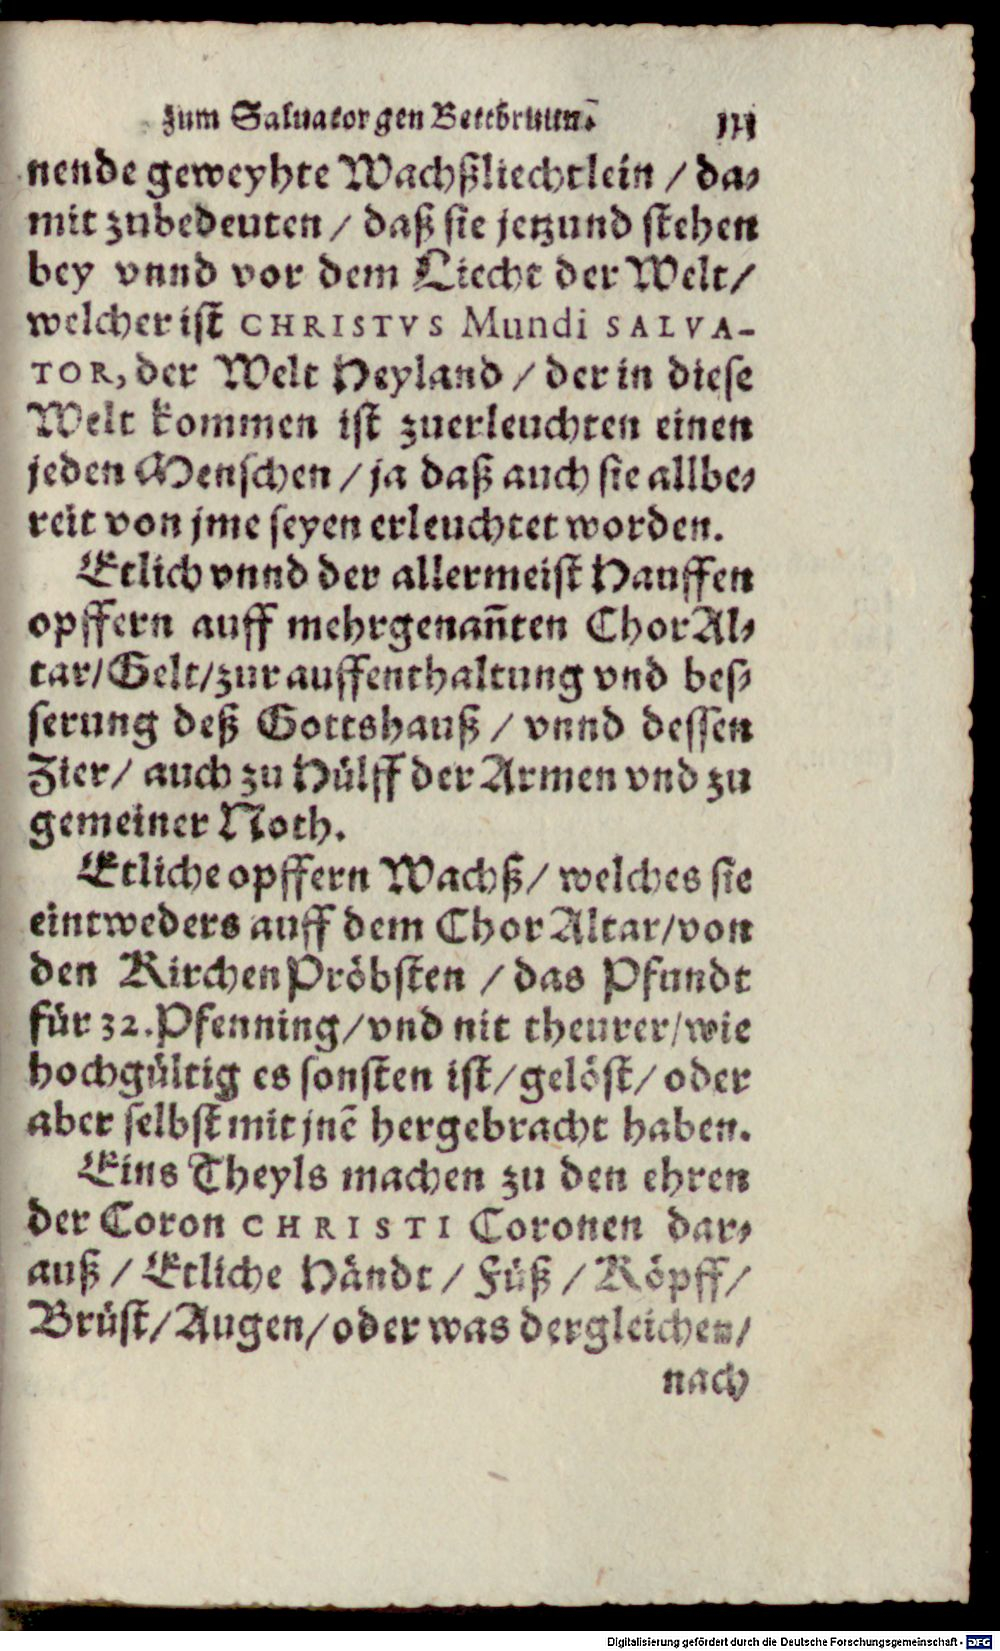 zum Saluator gen Bettbrunn̄. 111
nende geweyhte Wachßliechtlein / da⸗
mit zubedeuten / daß sie jetzund stehen
bey vnnd vor dem Liecht der Welt /
welcher ist CHRISTVS Mundi SALVA-
TOR, der Welt Heyland / der in diese
Welt kommen ist zuerleuchten einen
jeden Menschen / ja daß auch sie allbe⸗
reit von jme seyen erleuchtet worden.
Etlich vnnd der allermeist Hauffen
opffern auff mehrgenan̄ten Chor Al⸗
tar / Gelt / zur auffenthaltung vnd bes⸗
serung deß Gottshauß / vnnd dessen
Zier / auch zu Hülff der Armen vnd zu
gemeiner Noth.
Etliche opffern Wachß / welches sie
eintweders auff dem Chor Altar / von
den Kirchen Pröbsten / das Pfundt
für 32. Pfenning / vnd nit theurer / wie
hochgültig es sonsten ist / gelöst / oder
aber selbst mit jnē hergebracht haben.
Eins Theyls machen zu den ehren
der Coron CHRISTI Coronen dar⸗
auß / Etliche Händt / Füß / Köpff /
Brüst / Augen / oder was dergleichen /
nach
Digitalisierung gefördert durch die Deutsche Forschungsgemeinschaft - DFG